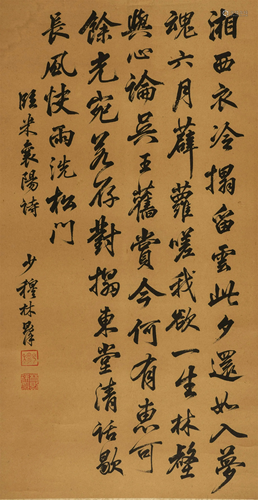 湘西衣冷搨留雲此夕還如入夢
魂六月薜蘿嗟我欲一生林壑
與心論吳王舊賞今何有惠可
餘光宛若存對搨東堂清話歇
長風快雨洗松門
臨米襄陽詩
少穆林